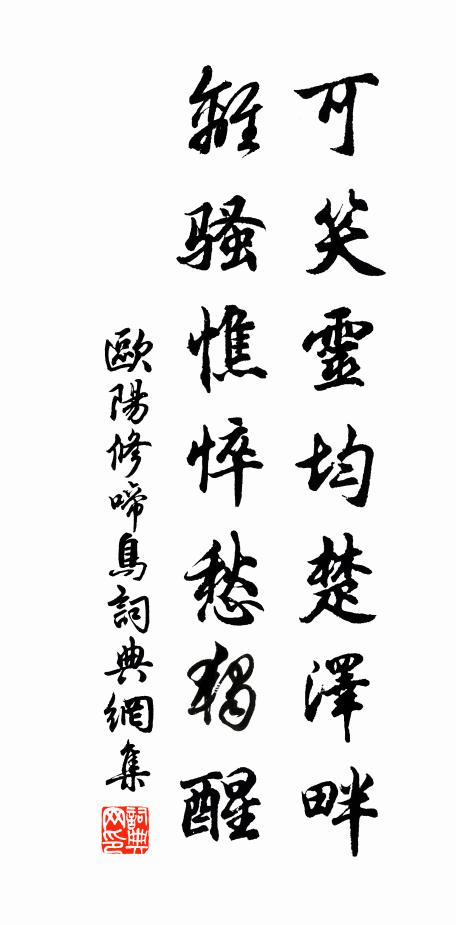 可笑靈均楚澤畔
離騷憔悴愁獨醒
歐陽修啼鳥詞典網集
詞典
网印